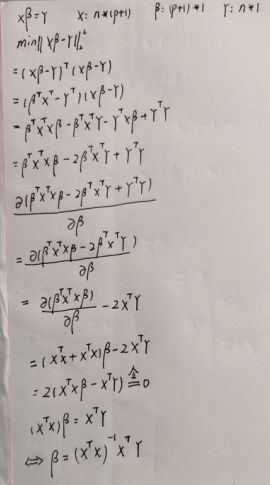 Xβ=Y X: n*(p+1) β: (p+1)*1 Y: n*1
min||Xβ-Y||₂²
=(Xβ-Y)ᵀ(Xβ-Y)
=(βᵀXᵀ-Yᵀ)(Xβ-Y)
=βᵀXᵀXβ-βᵀXᵀY-YᵀXβ+YᵀY
=βᵀXᵀXβ-2βᵀXᵀY+YᵀY
∂(βᵀXᵀXβ-2βᵀXᵀY+YᵀY)
∂β
=∂(βᵀXᵀXβ-2βᵀXᵀY)
∂β
=∂(βᵀXᵀXβ)
∂β -2XᵀY
=(XᵀX+XᵀX)β-2XᵀY
=2(XᵀXβ-XᵀY)≜0
(XᵀX)β=XᵀY
⇔ β=(XᵀX)⁻¹XᵀY